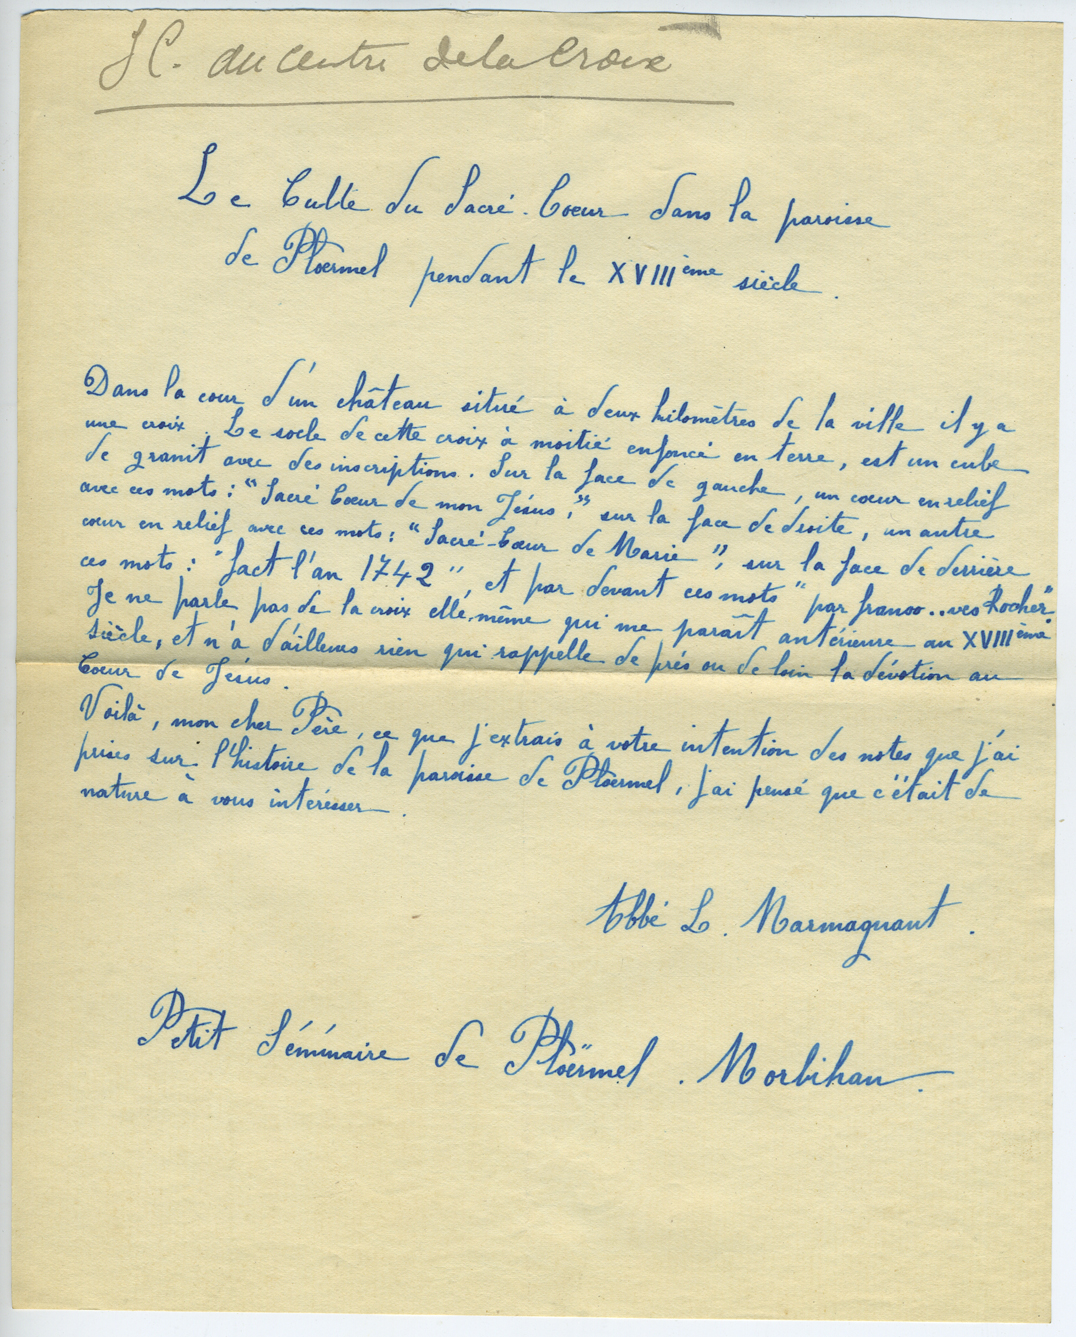 SC. au centre de la Croix
Le Culte du Sacré-Coeur dans la paroisse
de Ploërmel pendant le XVIIIème siècle.
Dans la cour d'un château situé à deux kilomètres de la ville il y a
une croix. Le socle de cette croix à moitié enfoncé en terre, est un cube
de granit avec des inscriptions. Sur la face de gauche, un coeur en relief
avec ces mots : "Sacré Coeur de mon Jésus;" sur la face de droite, un autre
coeur en relief avec ces mots : "Sacré-Coeur de Marie", sur la face de derrière
ces mots : "fact l'an 1742", et par devant ces mots "par franso..ves Rocher"
Je ne parle pas de la croix elle-même qui me paraît antérieure au XVIIIème
siècle, et n'a d'ailleurs rien qui rappelle de près ou de loin la dévotion au
Coeur de Jésus.
Voilà, mon cher Père, ce que j'extrais à votre intention des notes que j'ai
prises sur l'histoire de la paroisse de Ploërmel, j'ai pensé que c'était de
nature à vous intéresser.
Abbé L. Marmagnant.
Petit Séminaire de Ploërmel. Morbihan.